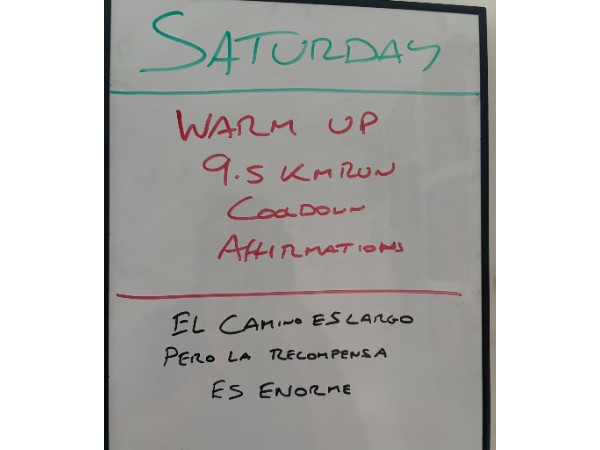 SATURDAY
WARM UP
9.5 KM RUN
COOLDOWN
AFFIRMATIONS
EL CAMINO ES LARGO
PERO LA RECOMPENSA
ES ENORME